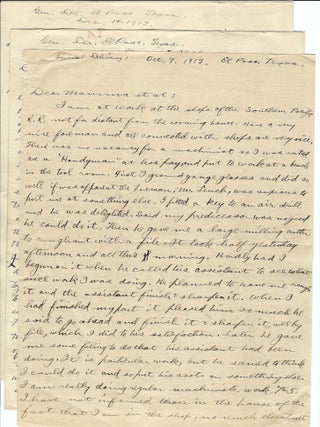 Gen. Del. El Paso, Texas
Dec. 14, 1913.
Gen. Del. El Paso, Texas.
Gen'l Delivery! Oct. 7, 1913. El Paso, Texas.
Dear Mamma et al!
I am at work at the shops of the Southern Pacific
R.R. not far distant from the rooming house. Have a very
nice foreman and all connected with shops are very nice.
There was no vacancy for a machinist so I was rated
as a "Handyman" at less pay and put to work at a bench
in the tool room. First I ground gauge glasses and did so
well it was apparent the foreman, Mr. French, was anxious to
put me at something else. I fitted a key to an air drill
and he was delighted. Said my predecessor was no good
he could do it. Then he gave me a large milling cutter
to roughout with a file. It took half yesterday
afternoon and all this morning. Hardly had I
begun on it when he called his assistant to see what
nice work I was doing. He planned to have me rough
it and the assistant finish & sharpen it. When I
had finished my part it pleased him so much he
said to go ahead and finish it & sharpen it, all by
file, which I did to his satisfaction. Later he gave
me some filing to do that his assistant had been
doing. It is particular work, but he seemed to think
I could do it and so put his asst. on something else.
I am really doing regular machinists work. This
I have not informed those in the house of the
fact that I am in the shop, so much